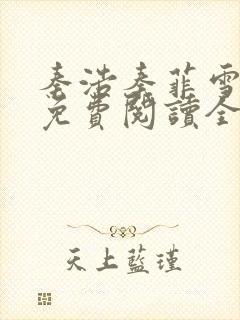 秦浩秦菲雪
免費閱讀全
天上藍瑾